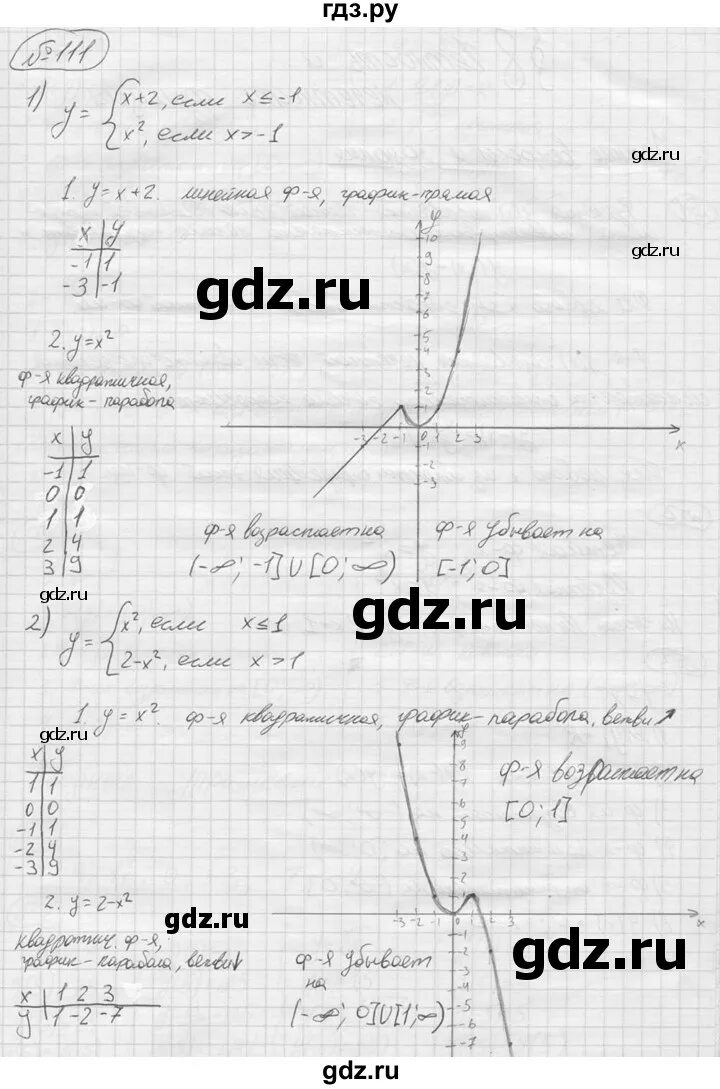 гдз.ру
№111
1) y = { x+2, если x ≤ -1
x², если x > -1
gdz.ru
1. y = x+2. линейная ф-я, график-прямая
gdz.ru
x | y
-1 | 1
-3 | -1
gdz.ru
2. y = x²
ф-я квадратичная,
график - парабола
gdz.ru
x | y
-1 | 1
0 | 0
1 | 1
2 | 4
3 | 9
y
10
9
8
7
6
5
4
3
2
1
-3 -2 -1 0 1 2 3 x
-1
-2
-3
ф-я возрастает на
(-∞; -1]∪[0; ∞)
ф-я убывает на
[-1; 0]
gdz.ru
gdz.ru
2) y = { x², если x ≤ 1
2-x², если x > 1
gdz.ru
1. y = x². ф-я квадратичная, график - парабола, ветви ↗
gdz.ru
x | y
1 | 1
0 | 0
-1 | 1
-2 | 4
-3 | 9
ф-я возрастает на
[0; 1]
2. y = 2-x²
квадратич. ф-я,
график - парабола, ветви ↓
gdz.ru
x | 1 2 3
y | 1 -2 -7
y
9
8
7
6
5
4
3
2
1
-3 -2 -1 0 1 2 3 x
-1
-2
-3
-4
-5
-6
-7
gdz.ru
ф-я убывает
на
(-∞; 0]∪[1; ∞)
gdz.ru
gdz.ru